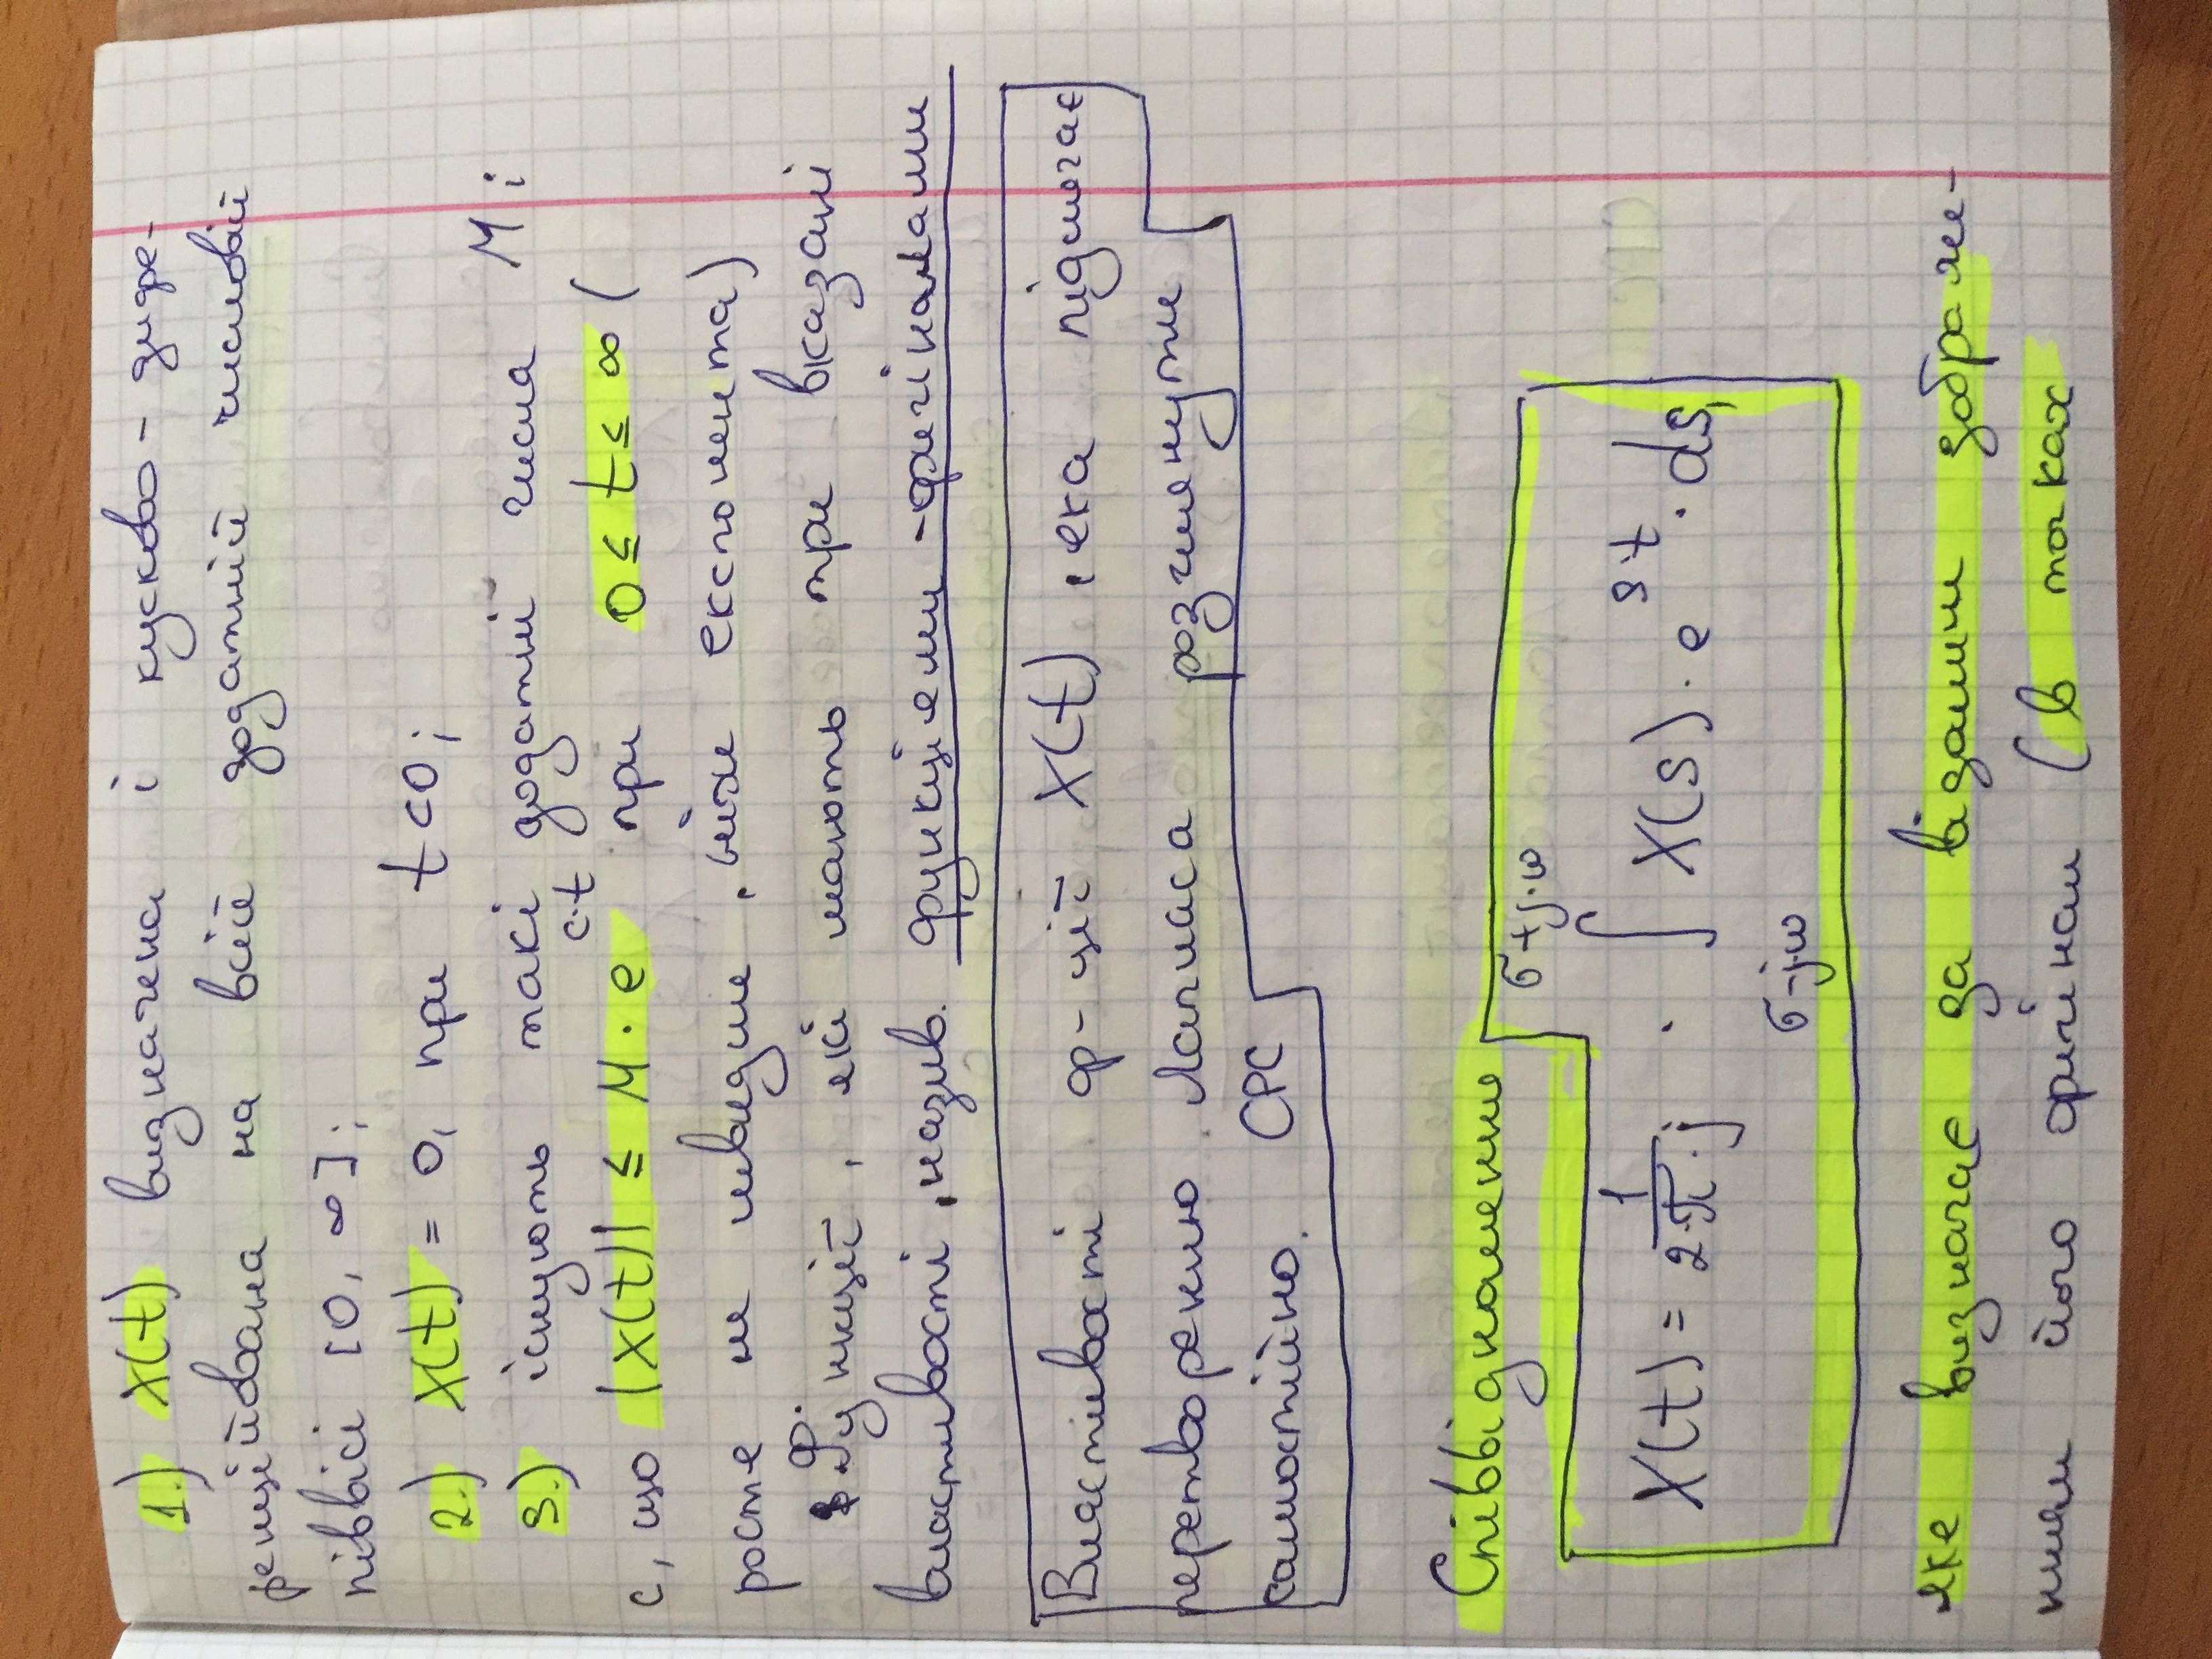 1.) X(t) визначена і кусково-дифе-
ренційована на всій додатній числовій
піввісі [0, ∞];
2.) X(t) = 0, при t<0;
3.) існують такі додатній числа M і
c, що |x(t)| ≤ M · e^{c·t} при 0 ≤ t ≤ ∞ (
росте не швидше, ніж експонента)
Функцій, які мають три вказані
властивості, назив. функціями-оригіналами
Властивості ф-цій X(t), яка підлягає
перетворенню Лапласа розглянути
самостійно. СРС
Співвідношення
X(t) = \frac{1}{2·π·j} · \int_{σ-j·ω}^{σ+j·ω} X(s) · e^{s·t} · ds,
яке визначає за відомим зображе-
нням його оригінал (в точках